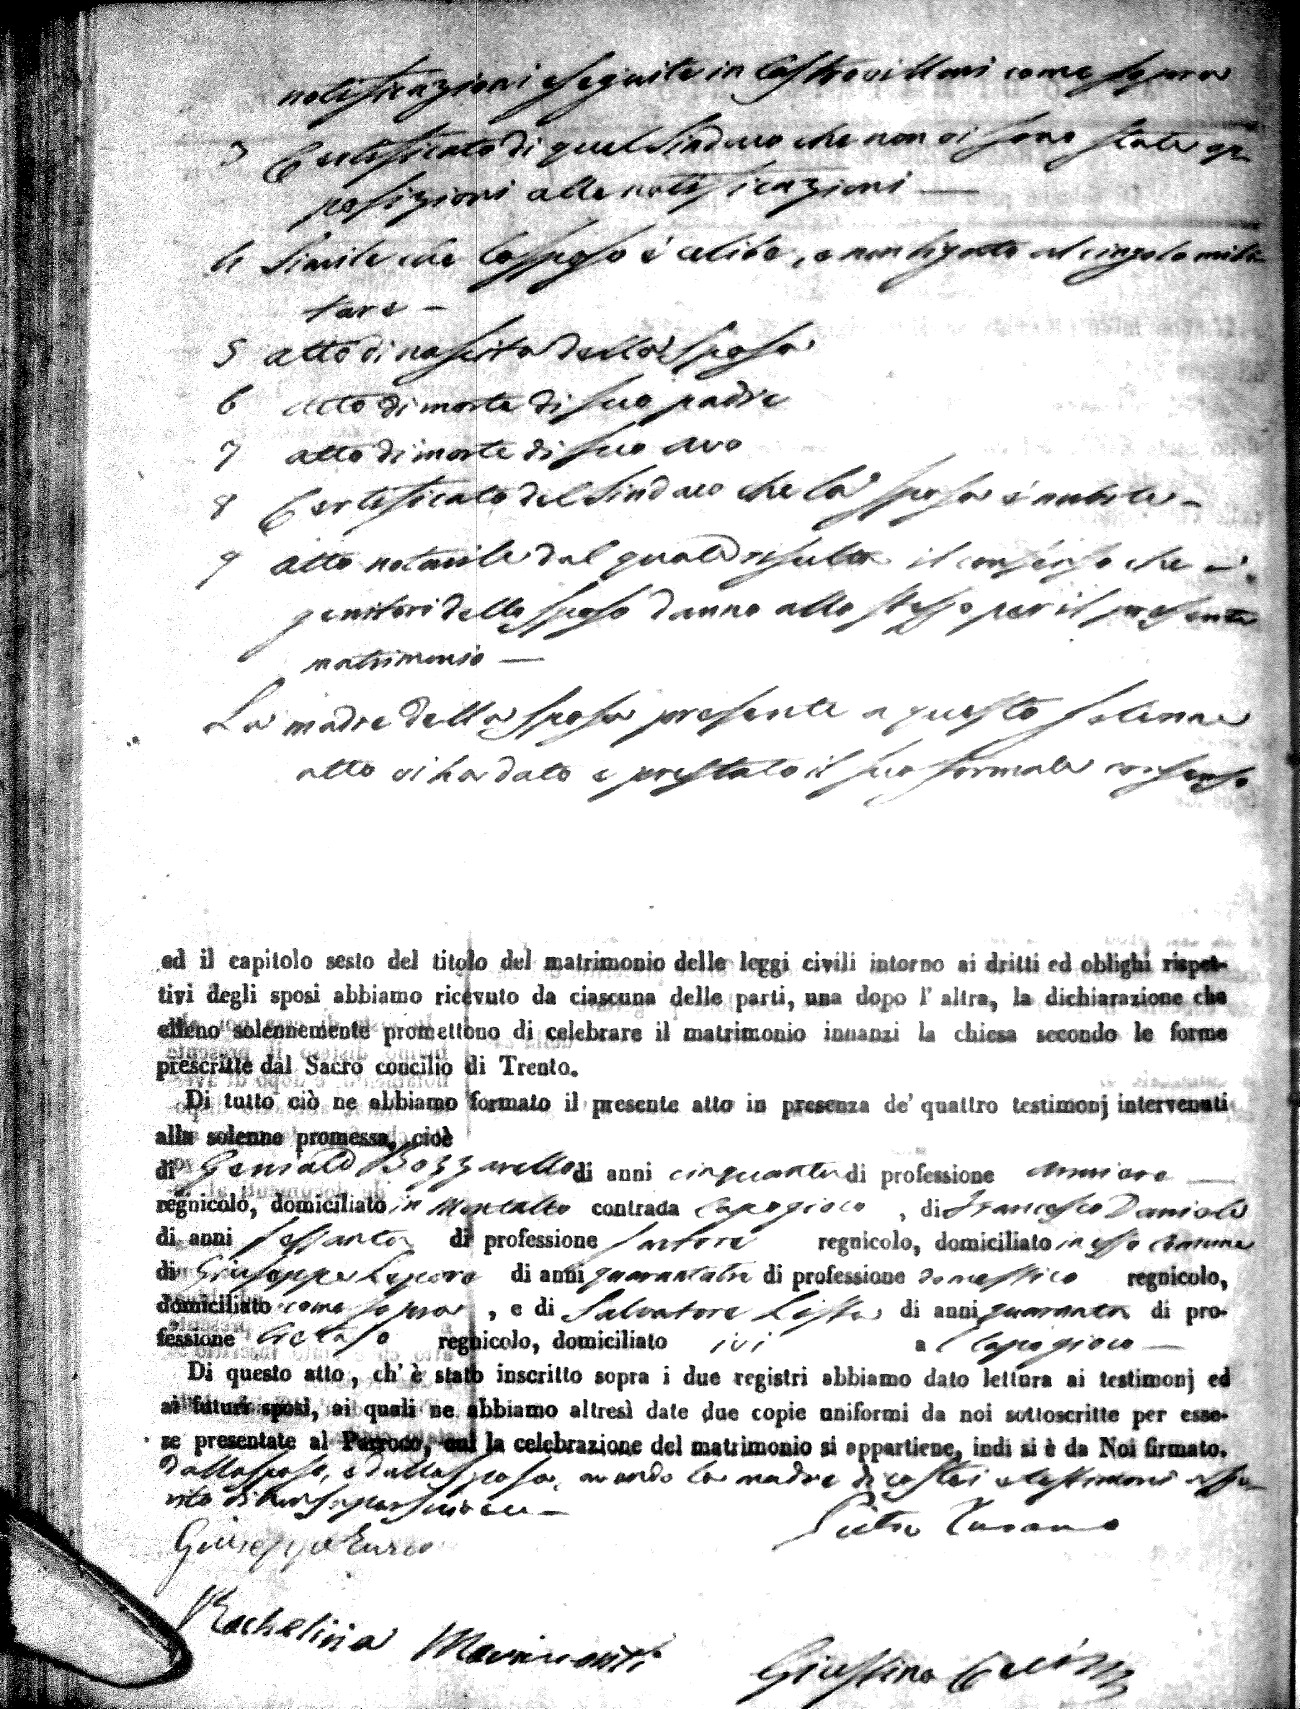 notificazioni eseguite in Castrovillari come sopra
3 Certificato di quel Sindaco che non vi sono state op-
posizioni alle notificazioni —
4 Simile che lo sposo è celibe, e non ligato al cingolo mili-
tare —
5 atto di nascita della sposa
6 atto di morte di suo padre
7 atto di morte di suo avo
8 Certificato del Sindaco che la sposa è nubile —
9 atto notarile dal quale risulta il consenso che i
genitori dello sposo danno allo stesso per il presente
matrimonio —
La madre della sposa presente a questo solenne
atto vi ha dato e prestato il suo formale consenso
ed il capitolo sesto del titolo del matrimonio delle leggi civili intorno ai dritti ed oblighi rispet-
tivi degli sposi abbiamo ricevuto da ciascuna delle parti, una dopo l' altra, la dichiarazione che
elleno solennemente promettono di celebrare il matrimonio innanzi la chiesa secondo le forme
prescritte dal Sacro concilio di Trento.
Di tutto ciò ne abbiamo formato il presente atto in presenza de' quattro testimonj intervenuti
alla solenne promessa, cioè
di Bozzarello di anni cinquanta di professione
regnicolo, domiciliato in Montalto contrada Capogioco , di Francesco Daniele
di anni sessanta di professione sartore regnicolo, domiciliato in esso comune
di Giuseppe di anni quarantatre di professione domestico regnicolo,
domiciliato come sopra , e di Salvatore di anni quaranta di pro-
fessione regnicolo, domiciliato ivi a Capogioco —
Di questo atto, ch' è stato inscritto sopra i due registri abbiamo dato lettura ai testimonj ed
ai futuri sposi, ai quali ne abbiamo altresì date due copie uniformi da noi sottoscritte per esse-
re presentate al Parroco, cui la celebrazione del matrimonio si appartiene, indi si è da Noi firmato.
dallo sposo, e dalla sposa, avendo la madre di costei e testimoni asse-
rito di non saper scrivere —
Giuseppe Pietro
Rachelina
Giustino